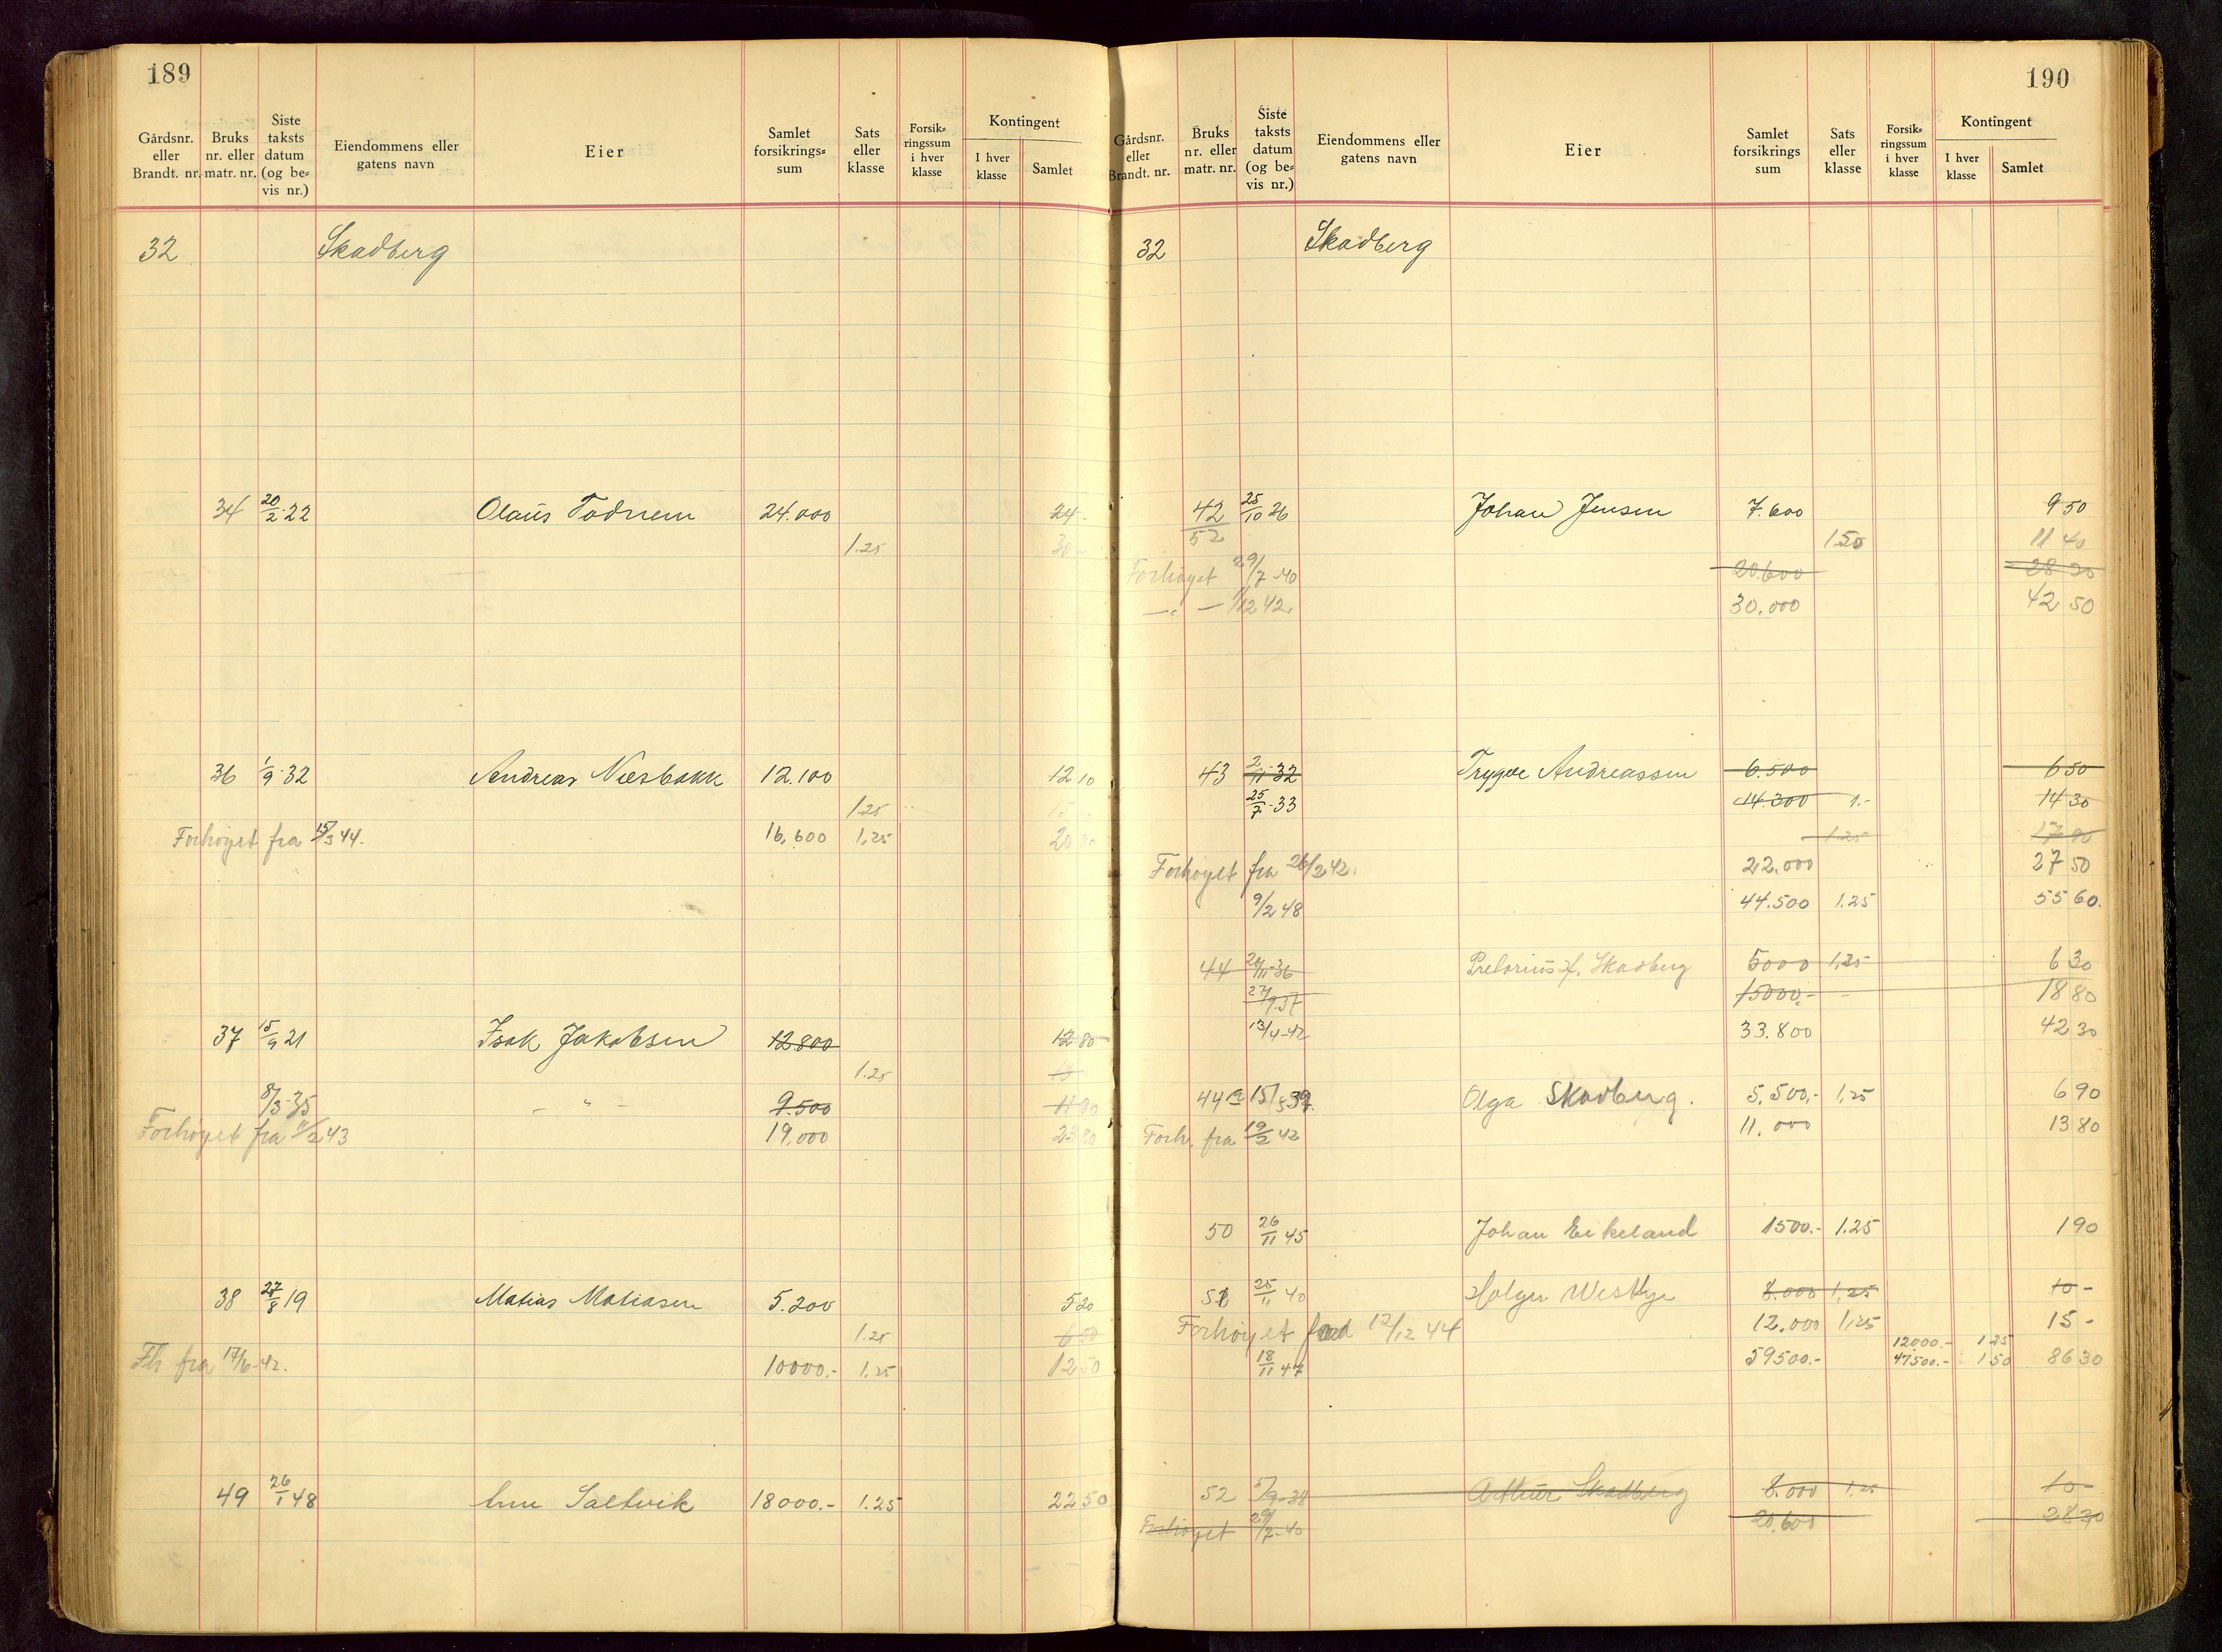 189
Gårdsnr. eller Brandt. nr.
Bruks nr. eller matr. nr.
Siste taksts datum (og be= vis nr.)
Eiendommens eller gatens navn
Eier
Samlet forsikrings= sum
Sats eller klasse
Forsik= ringssum i hver klasse
Kontingent
I hver klasse
Samlet
32 Skadberg
34 20/2-22 Olaus Todnem 24.000 24.-
1.25 30
36 1/9-32 Andreas Næsbakk 12.100 12 10
1.25 15
Forhöyet fra 15/3 44. 16,600 1,25 20
37 15/9 21 Isak Jakobsen 12.800 12 80
1.25
8/3-35 - " - 9.500 11 90
Forhöyet fra 11/2 43 19,000 23 80
38 27/8 19 Matias Matiasen 5.200 5 20
1.25 6 50
Fh fra 17/6-42. 10000.- 1,25 12 50
49 26/1 48 Arne Saltvik 18000.- 1.25 22 50
190
Gårdsnr. eller Brandt. nr.
Bruks nr. eller matr. nr.
Siste taksts datum (og be= vis nr.)
Eiendommens eller gatens navn
Eier
Samlet forsikrings sum
Sats eller klasse
Forsik= ringssum i hver klasse
Kontingent
I hver klasse
Samlet
32 Skadberg
42 25/10 26 Johan Jensen 7.600 9 50
52 1.50 11 40
Forhöyet 29/7-40 20.600 28 30
-"- 1/12 42. 30.000 42 50
43 2/11-32 Trygve Andreassen 6.500 6 50
25/7-33 14.300 1.- 14 30
1.25 17 90
Forhöyet fra 26/2 42. 22.000 27 50
9/2 48 44.500 1.25 55 60.
44 26/11-36 Skadberg 5000 1,25 6 30
27/9 37 15000.- 18 80
13/4-42 33.800 42 30
44 a 15/5 39 Olga Skadberg. 5,500,- 1,25 6 90
Forh. fra 19/2 42 11.000 13 80
50 26/11 45 Johan Eikeland 1500.- 1.25 1 90
51 25/11 40 Holger Westbye 8.000 1,25 10 -
Forhöyet fra 12/12 44 12.000 1,25 15 -
12000.- 1 25
18/11 47 59500.- 47500.- 1 50 86 30
52 5/9-38 Arthur Skadberg 8.000 1,25 10 -
Forhöyet 29/7-40 20.600 28 30